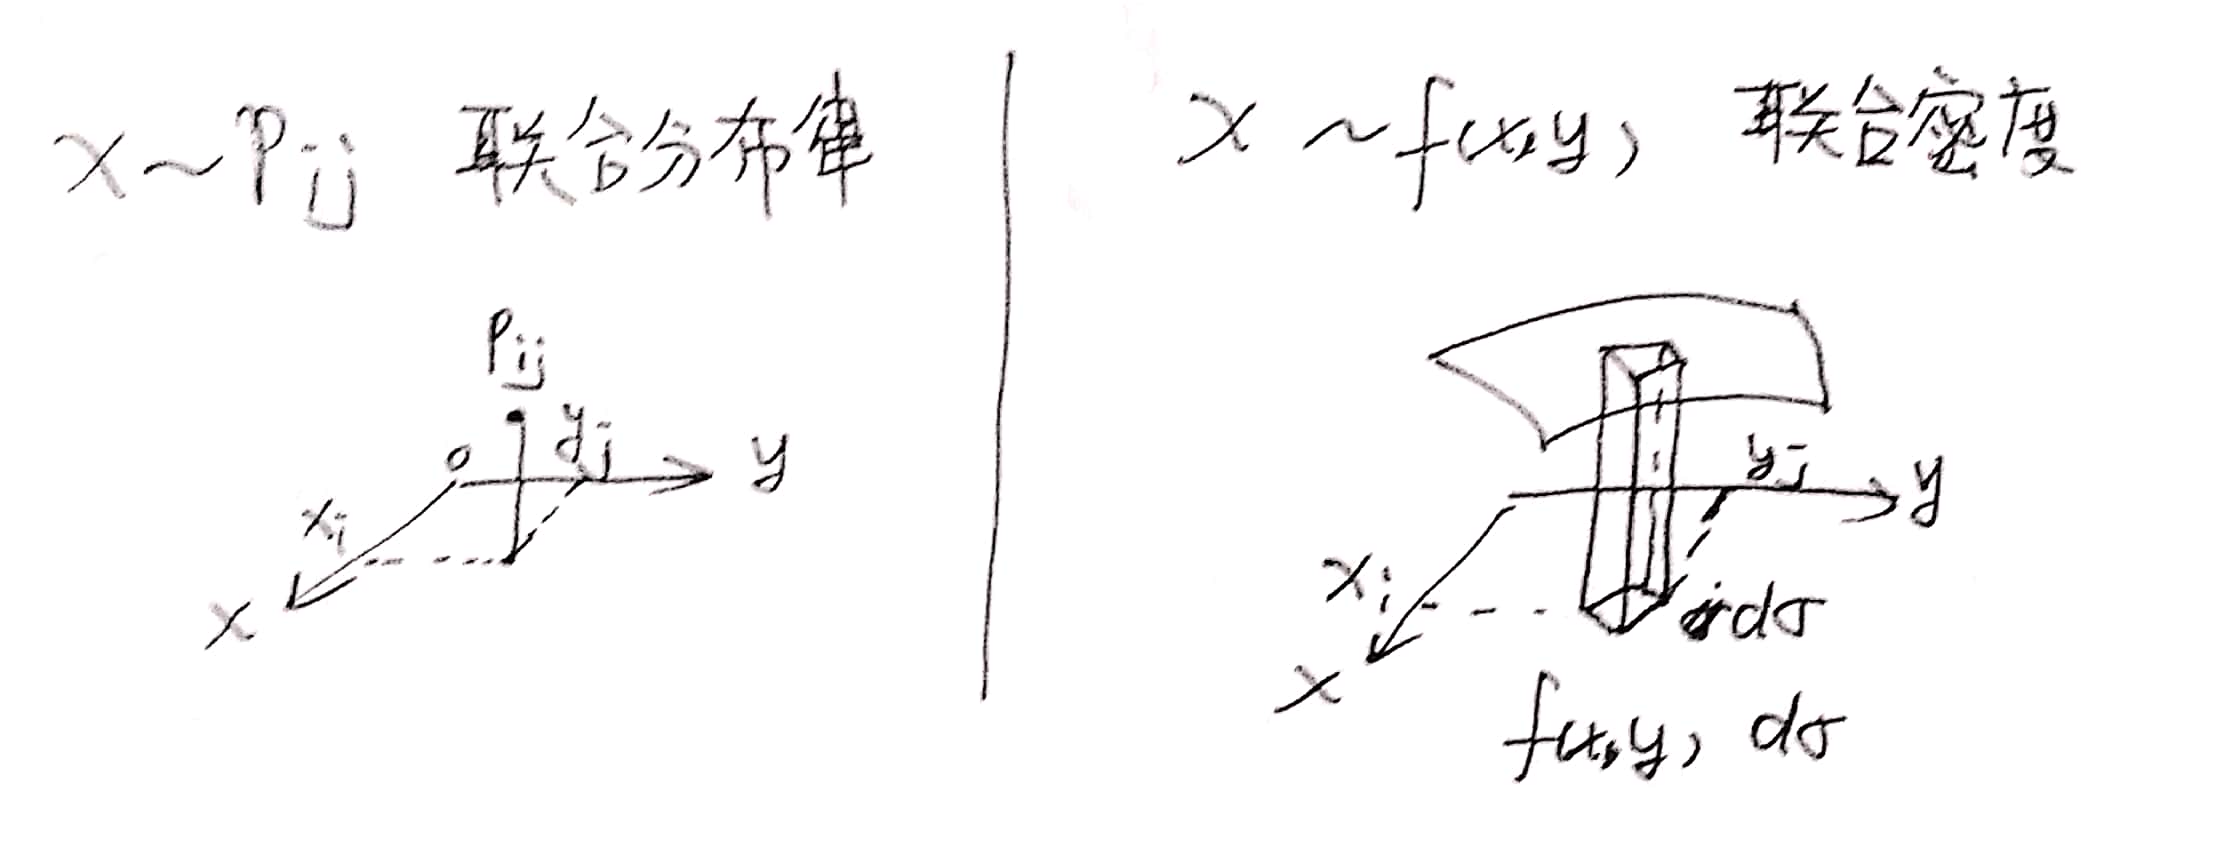 x~Pij 联合分布律
Pij
o
yj
y
xi
x
x ~ f(x,y) 联合密度
yj
y
xi
dσ
x
f(x,y) dσ